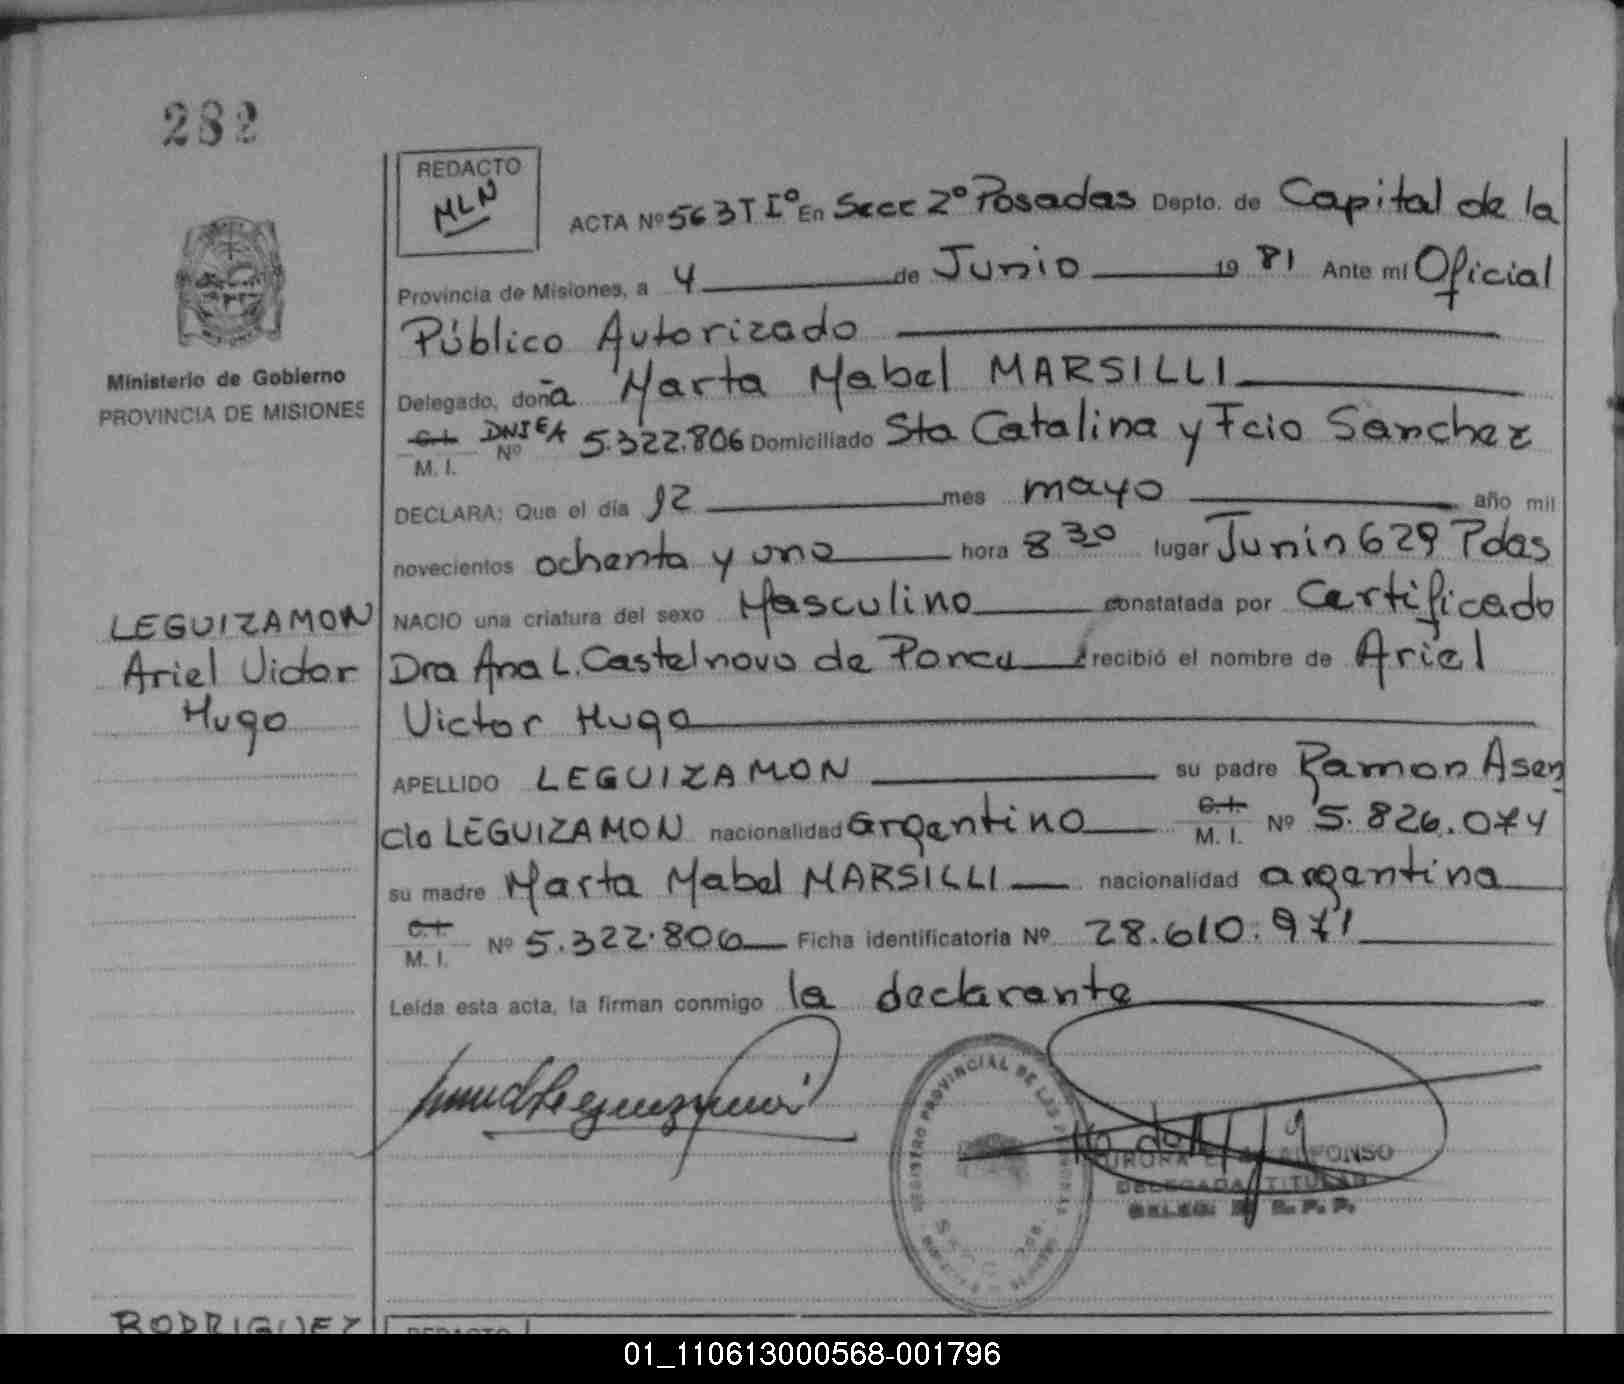 282
REDACTO
MLN
ACTA Nº 563 T Iº En Secc 2º Posadas Depto. de Capital de la
Provincia de Misiones, a 4 de Junio 19 81 Ante mí Oficial
Público Autorizado
Delegado, doña Marta Mabel MARSILLI
C.I. DNIEA
M. I. Nº 5.322.806 Domiciliado Sta Catalina y Fcio Sanchez
DECLARA: Que el día 12 mes mayo año mil
novecientos ochenta y uno hora 8 30 lugar Junin 629 Pdas
NACIO una criatura del sexo Masculino constatada por Certificado
Dra Ana L. Castelnovo de recibió el nombre de Ariel
Victor Hugo
APELLIDO LEGUIZAMON su padre Ramon Asen
cio LEGUIZAMON nacionalidad argentino C.I. M. I. Nº 5.826.074
su madre Marta Mabel MARSILLI nacionalidad argentina
C.I. M. I. Nº 5.322.806 Ficha identificatoria Nº 28.610.971
Leída esta acta, la firman conmigo la declarante
Ministerio de Gobierno
PROVINCIA DE MISIONES
LEGUIZAMON
Ariel Victor
Hugo
REGISTRO PROVINCIAL DE LAS PERSONAS
ALFONSO
DELEGADA TITULAR
RODRIGUEZ
REDACTO
01_110613000568-001796